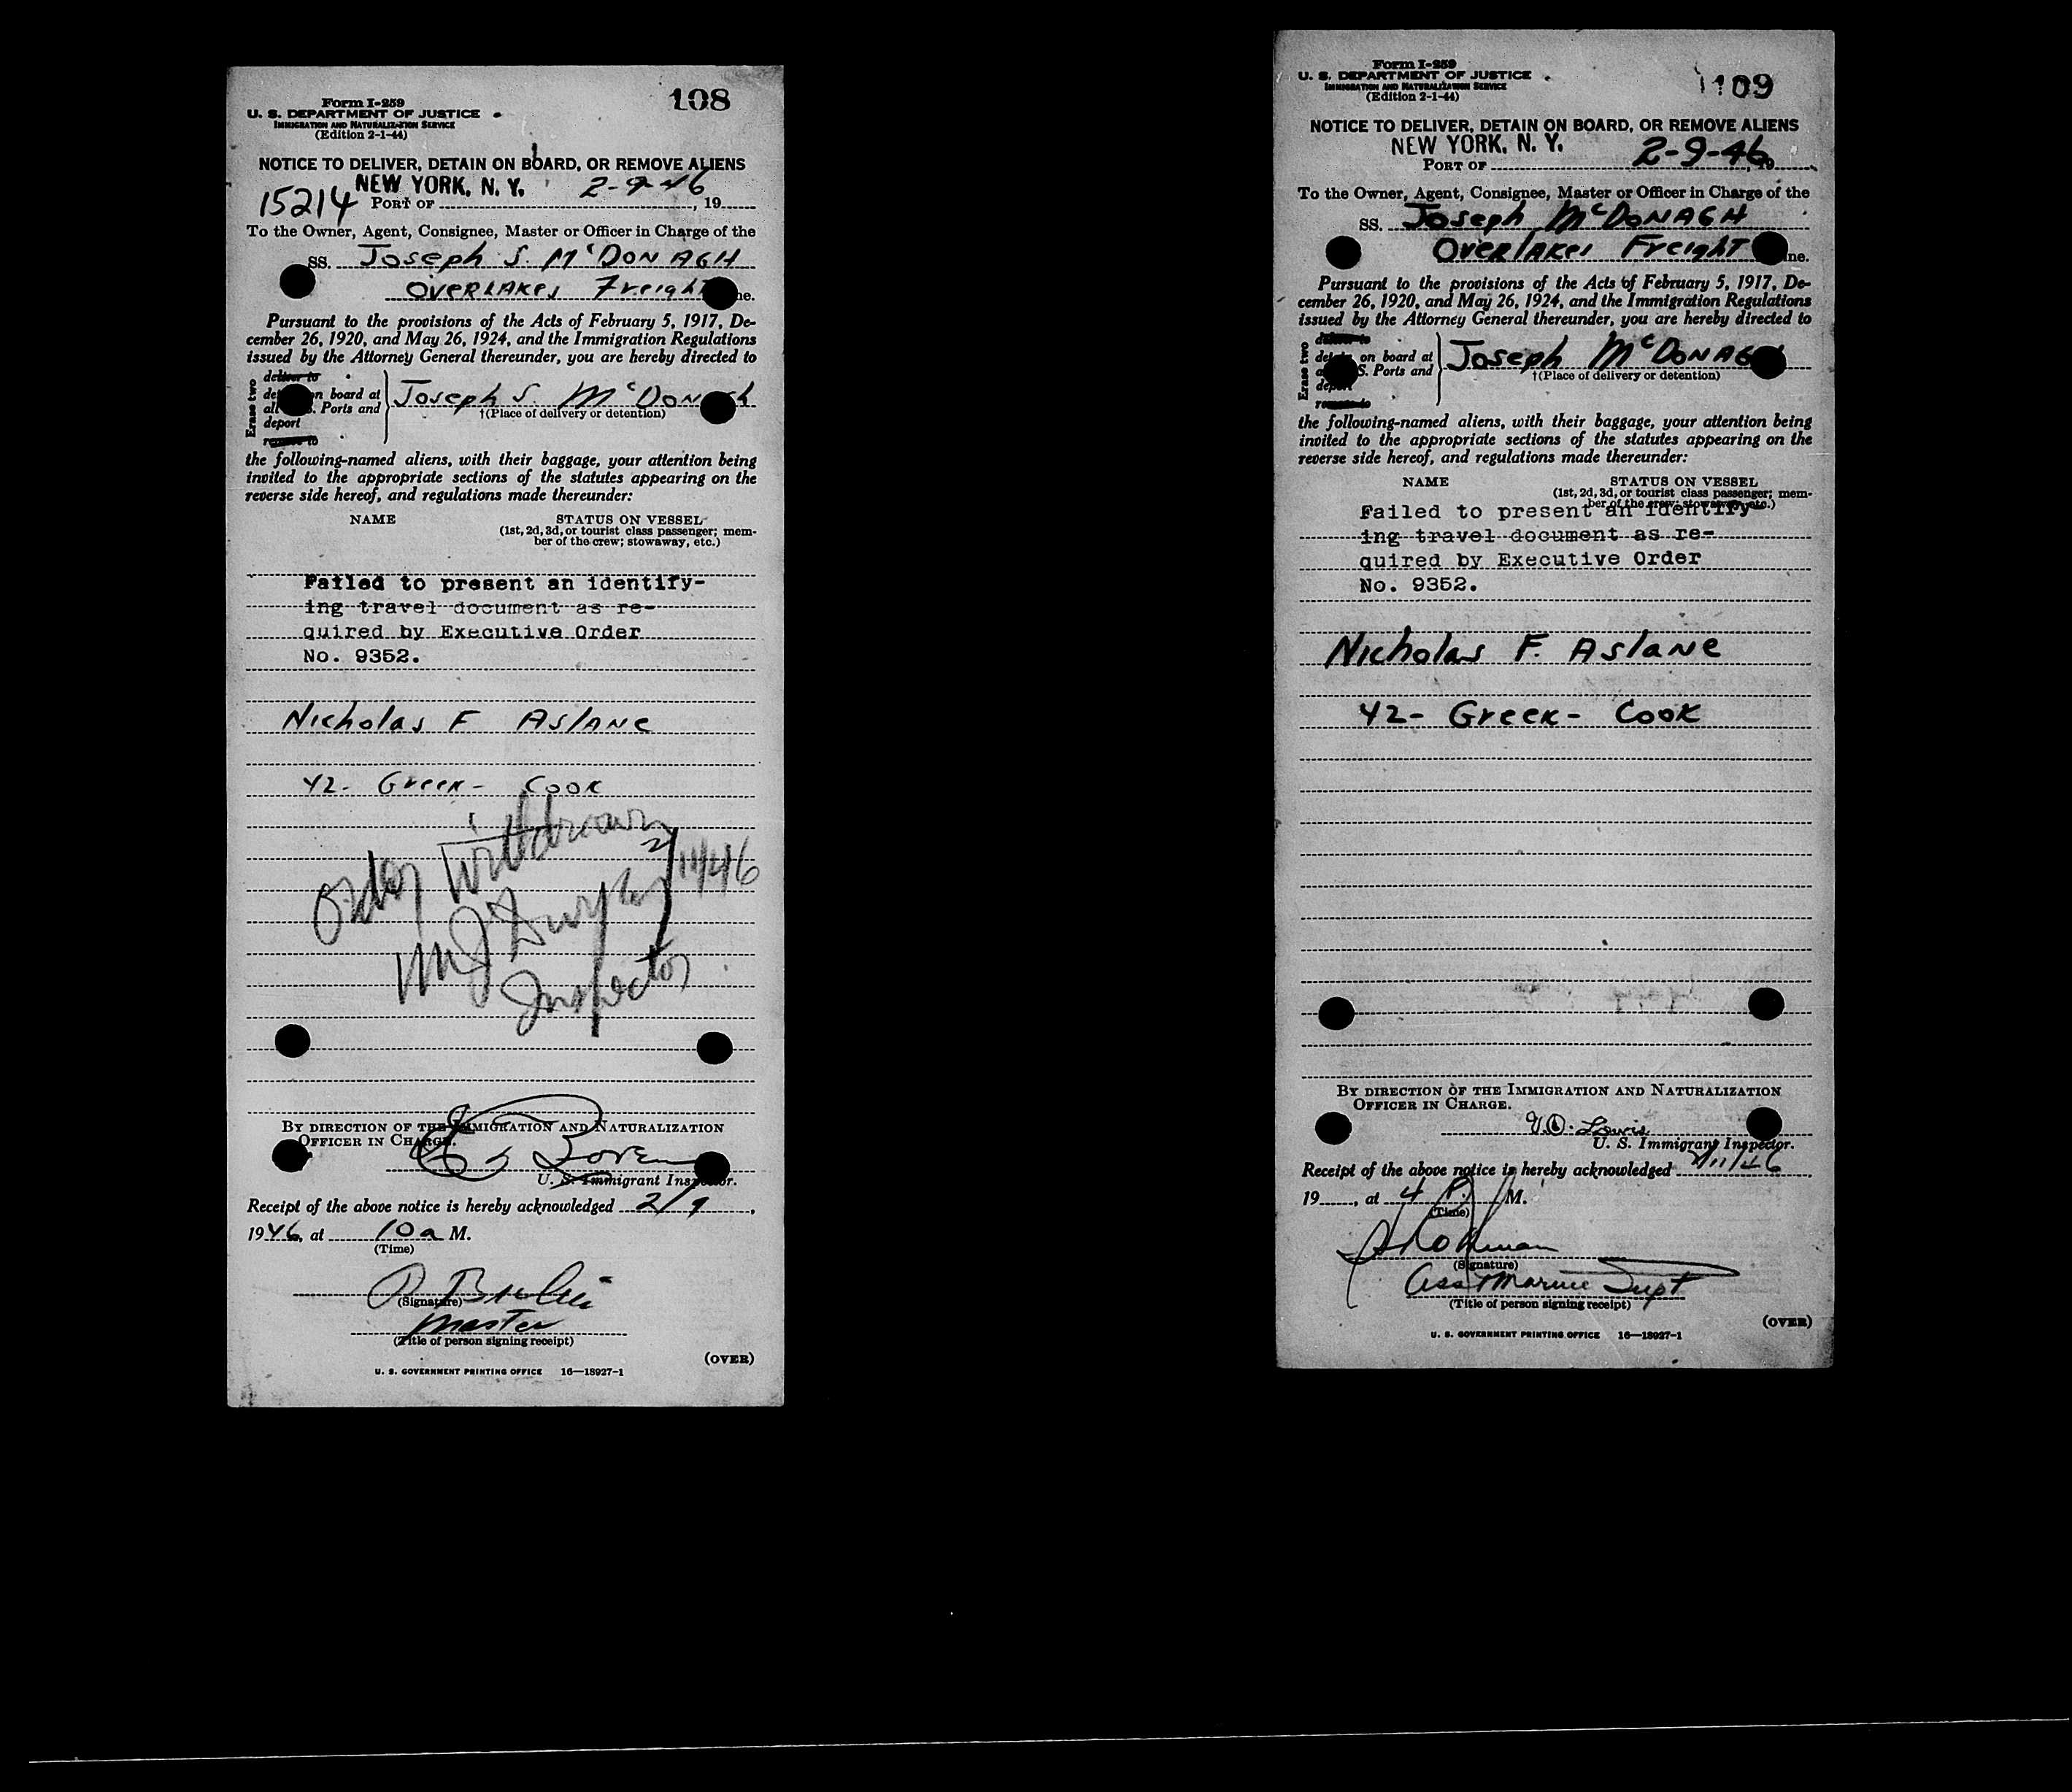 Form I-259
U. S. DEPARTMENT OF JUSTICE
IMMIGRATION AND NATURALIZATION SERVICE
(Edition 2-1-44)
108
NOTICE TO DELIVER, DETAIN ON BOARD, OR REMOVE ALIENS
NEW YORK, N. Y. 2-9-46
15214 PORT OF , 19
To the Owner, Agent, Consignee, Master or Officer in Charge of the
SS. Joseph S. McDONAGH
OVERLAKES Freight
Pursuant to the provisions of the Acts of February 5, 1917, De-
cember 26, 1920, and May 26, 1924, and the Immigration Regulations
issued by the Attorney General thereunder, you are hereby directed to
Erase two
deliver to
on board at
Ports and
deport
remove to
Joseph S. McDonagh
†(Place of delivery or detention)
the following-named aliens, with their baggage, your attention being
invited to the appropriate sections of the statutes appearing on the
reverse side hereof, and regulations made thereunder:
NAME STATUS ON VESSEL
(1st, 2d, 3d, or tourist class passenger; mem-
ber of the crew; stowaway, etc.)
Failed to present an identify-
ing travel document as re-
quired by Executive Order
No. 9352.
Nicholas F Aslane
42- Greek- Cook
Order Withdrawn
Inspector
BY DIRECTION OF THE IMMIGRATION AND NATURALIZATION
OFFICER IN CHARGE.
U. S. Immigrant Inspector.
Receipt of the above notice is hereby acknowledged 2/9,
1946, at 10a M.
(Time)
(Signature)
Master
(Title of person signing receipt)
(OVER)
U. S. GOVERNMENT PRINTING OFFICE 16—18927-1
Form I-259
U. S. DEPARTMENT OF JUSTICE
IMMIGRATION AND NATURALIZATION SERVICE
(Edition 2-1-44)
109
NOTICE TO DELIVER, DETAIN ON BOARD, OR REMOVE ALIENS
NEW YORK, N. Y. 2-9-46
PORT OF , 19
To the Owner, Agent, Consignee, Master or Officer in Charge of the
SS. Joseph McDONAGH
Overlakes Freight
Pursuant to the provisions of the Acts of February 5, 1917, De-
cember 26, 1920, and May 26, 1924, and the Immigration Regulations
issued by the Attorney General thereunder, you are hereby directed to
Erase two
deliver to
on board at
S. Ports and
deport
remove to
Joseph McDonagh
†(Place of delivery or detention)
the following-named aliens, with their baggage, your attention being
invited to the appropriate sections of the statutes appearing on the
reverse side hereof, and regulations made thereunder:
NAME STATUS ON VESSEL
(1st, 2d, 3d, or tourist class passenger; mem-
ber of the crew; stowaway, etc.)
Failed to present an identify-
ing travel document as re-
quired by Executive Order
No. 9352.
Nicholas F. Aslane
42- Greek- Cook
BY DIRECTION OF THE IMMIGRATION AND NATURALIZATION
OFFICER IN CHARGE.
Lewis
U. S. Immigrant Inspector.
Receipt of the above notice is hereby acknowledged 2/11/46,
19 , at 4 P. M.
(Time)
(Signature)
Ass Marine Supt
(Title of person signing receipt)
(OVER)
U. S. GOVERNMENT PRINTING OFFICE 16—18927-1